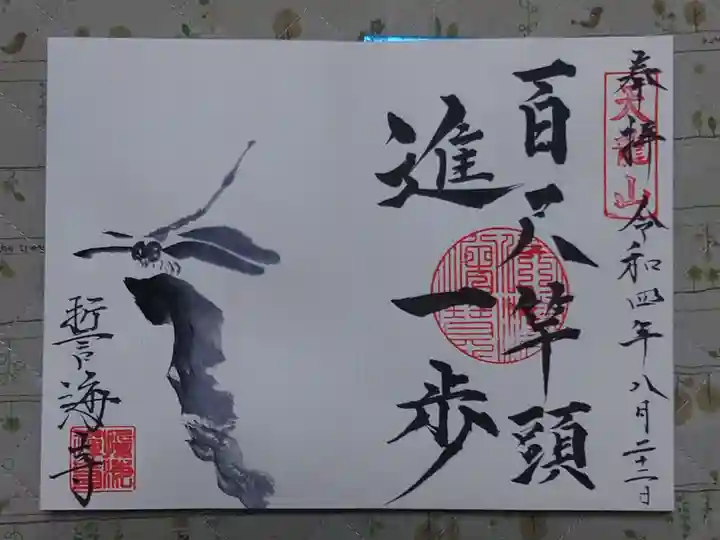 奉拝 令和四年八月二十二日
天龍山
百尺竿頭
進一歩
誓海寺